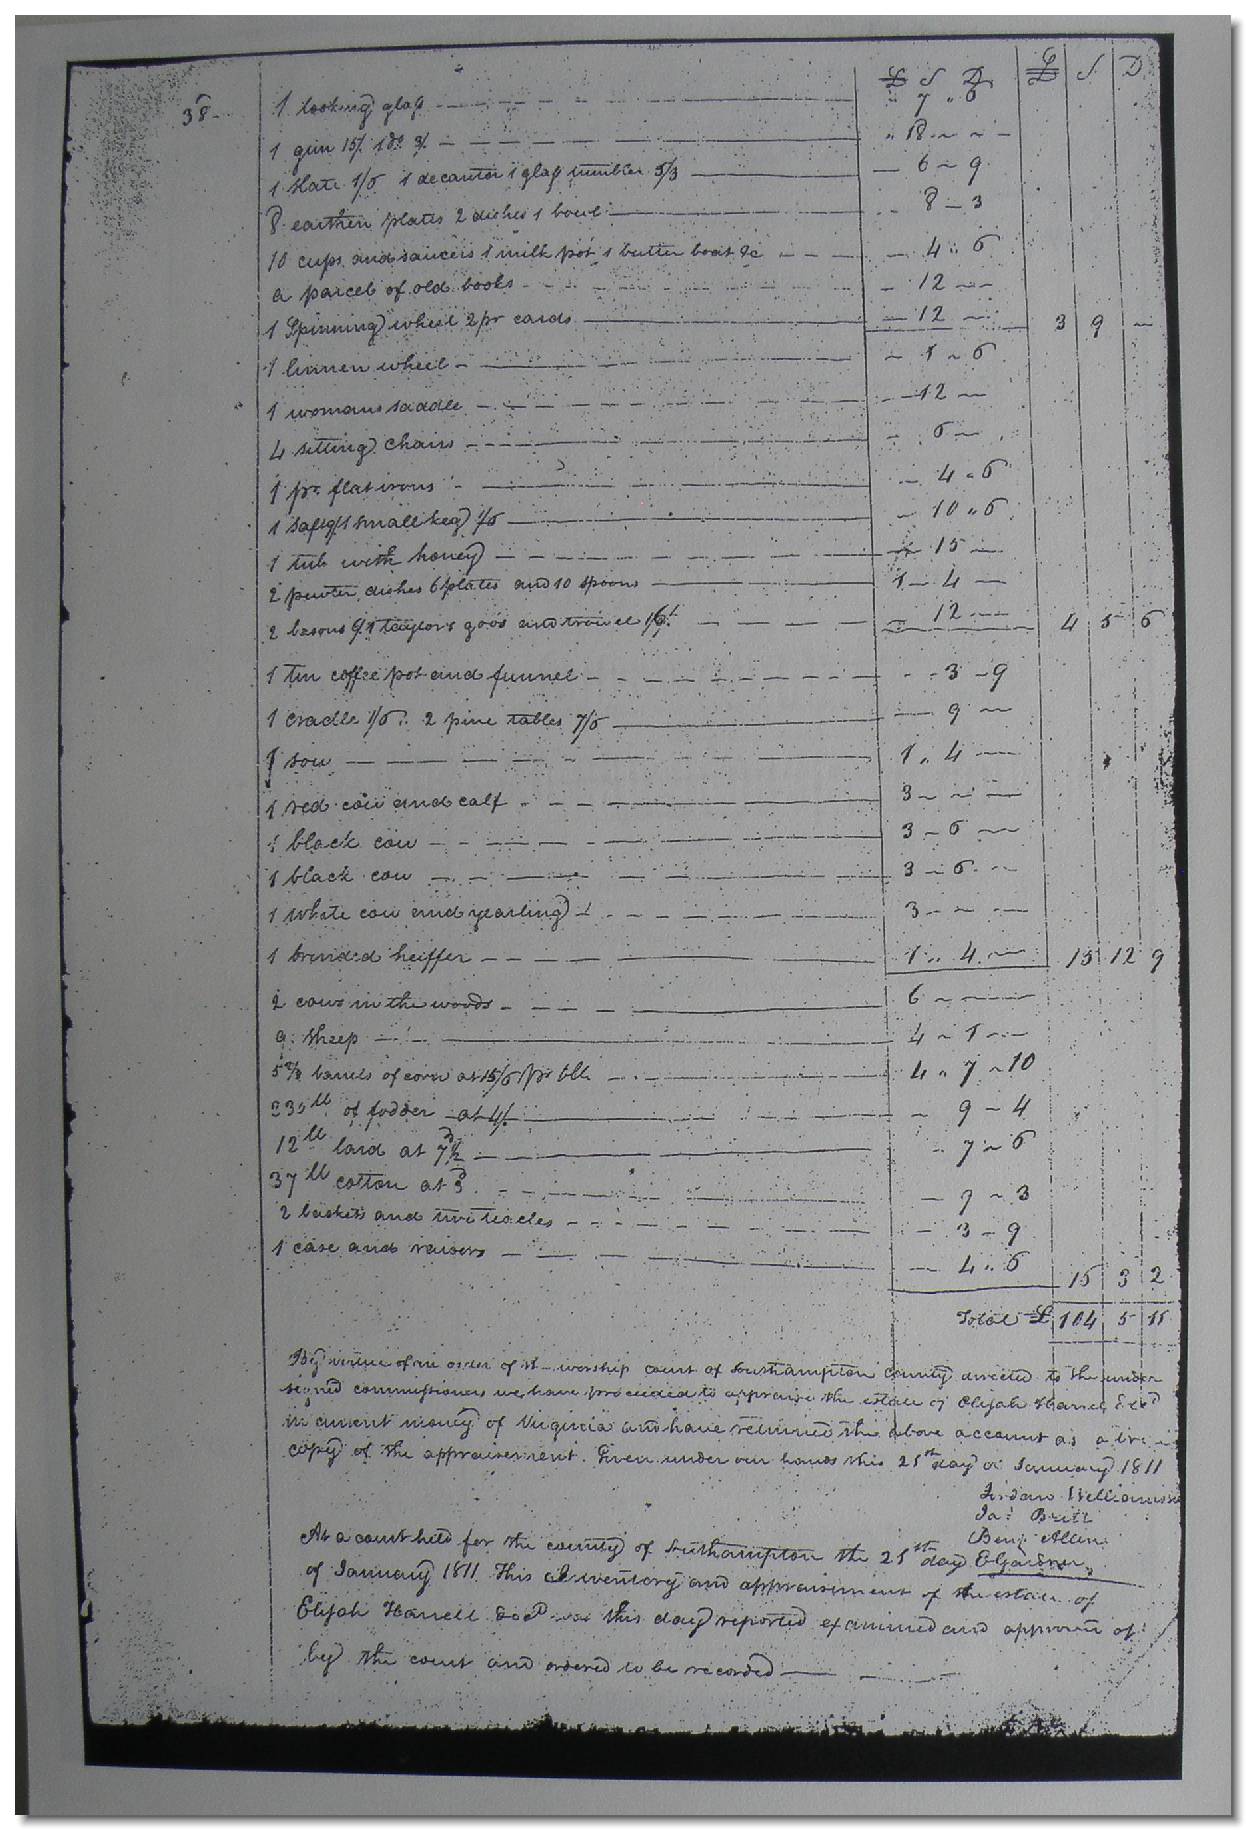 £ S D £ S D
38 1 looking glass 7 " 6
1 gun 15/. 1 do. 3/. " 18
1 slate 1/6 1 decanter 1 glass tumbler 5/3 6 9
8 earthen plates 2 dishes 1 bowl 8 3
10 cups and saucers 1 milk pot 1 butter boat &c 4 " 6
a parcel of old books 12
1 Spinning wheel 2 pr cards 12 3 9
1 linnen wheel 1 6
1 womans saddle 12
4 sitting chairs 6
1 pr. flat irons 4 " 6
1 small keg 1/6 10 " 6
1 tub with honey 15
2 pewter dishes 6 plates and 10 spoons 1 4
2 basons 9/. 1 taylors goos and 12 4 5 6
1 tin coffee pot and funnel 3 9
1 cradle 1/6. 2 pine tables 7/6 9
1 sow 1 " 4
1 red cow and calf 3
1 black cow 3 6
1 black cow 3 6
1 white cow and yearling 3
1 brinded heiffer 1 " 4 15 12 9
2 cows in the woods 6
9 sheep 4 1
barrels of corn at 15/6 pr bll 4 " 7 10
of fodder at 4/. 9 4
12 ll lard at 7 1/2 d 7 6
37 ll cotton at 3 d 9 3
2 baskets and 3 9
1 case and raisors 4 " 6 15 3 2
Total £ 104 5 11
By virtue of an order of the worship court of Southampton County directed to the under
signed commissioners we have proceeded to appraise the estate of Elijah Harrell Decd
in current money of Virginia and have returned the above account as a true
copy of the appraisement. Given under our hands this 21st day of January 1811
Jordan Williamson
Jas Britt
Benj. Allen
At a court held for the county of Southampton the 21st day
of January 1811. This Inventory and appraisement of the estate of
Elijah Harrell decd was this day reported examined and approven of
by the court and ordered to be recorded